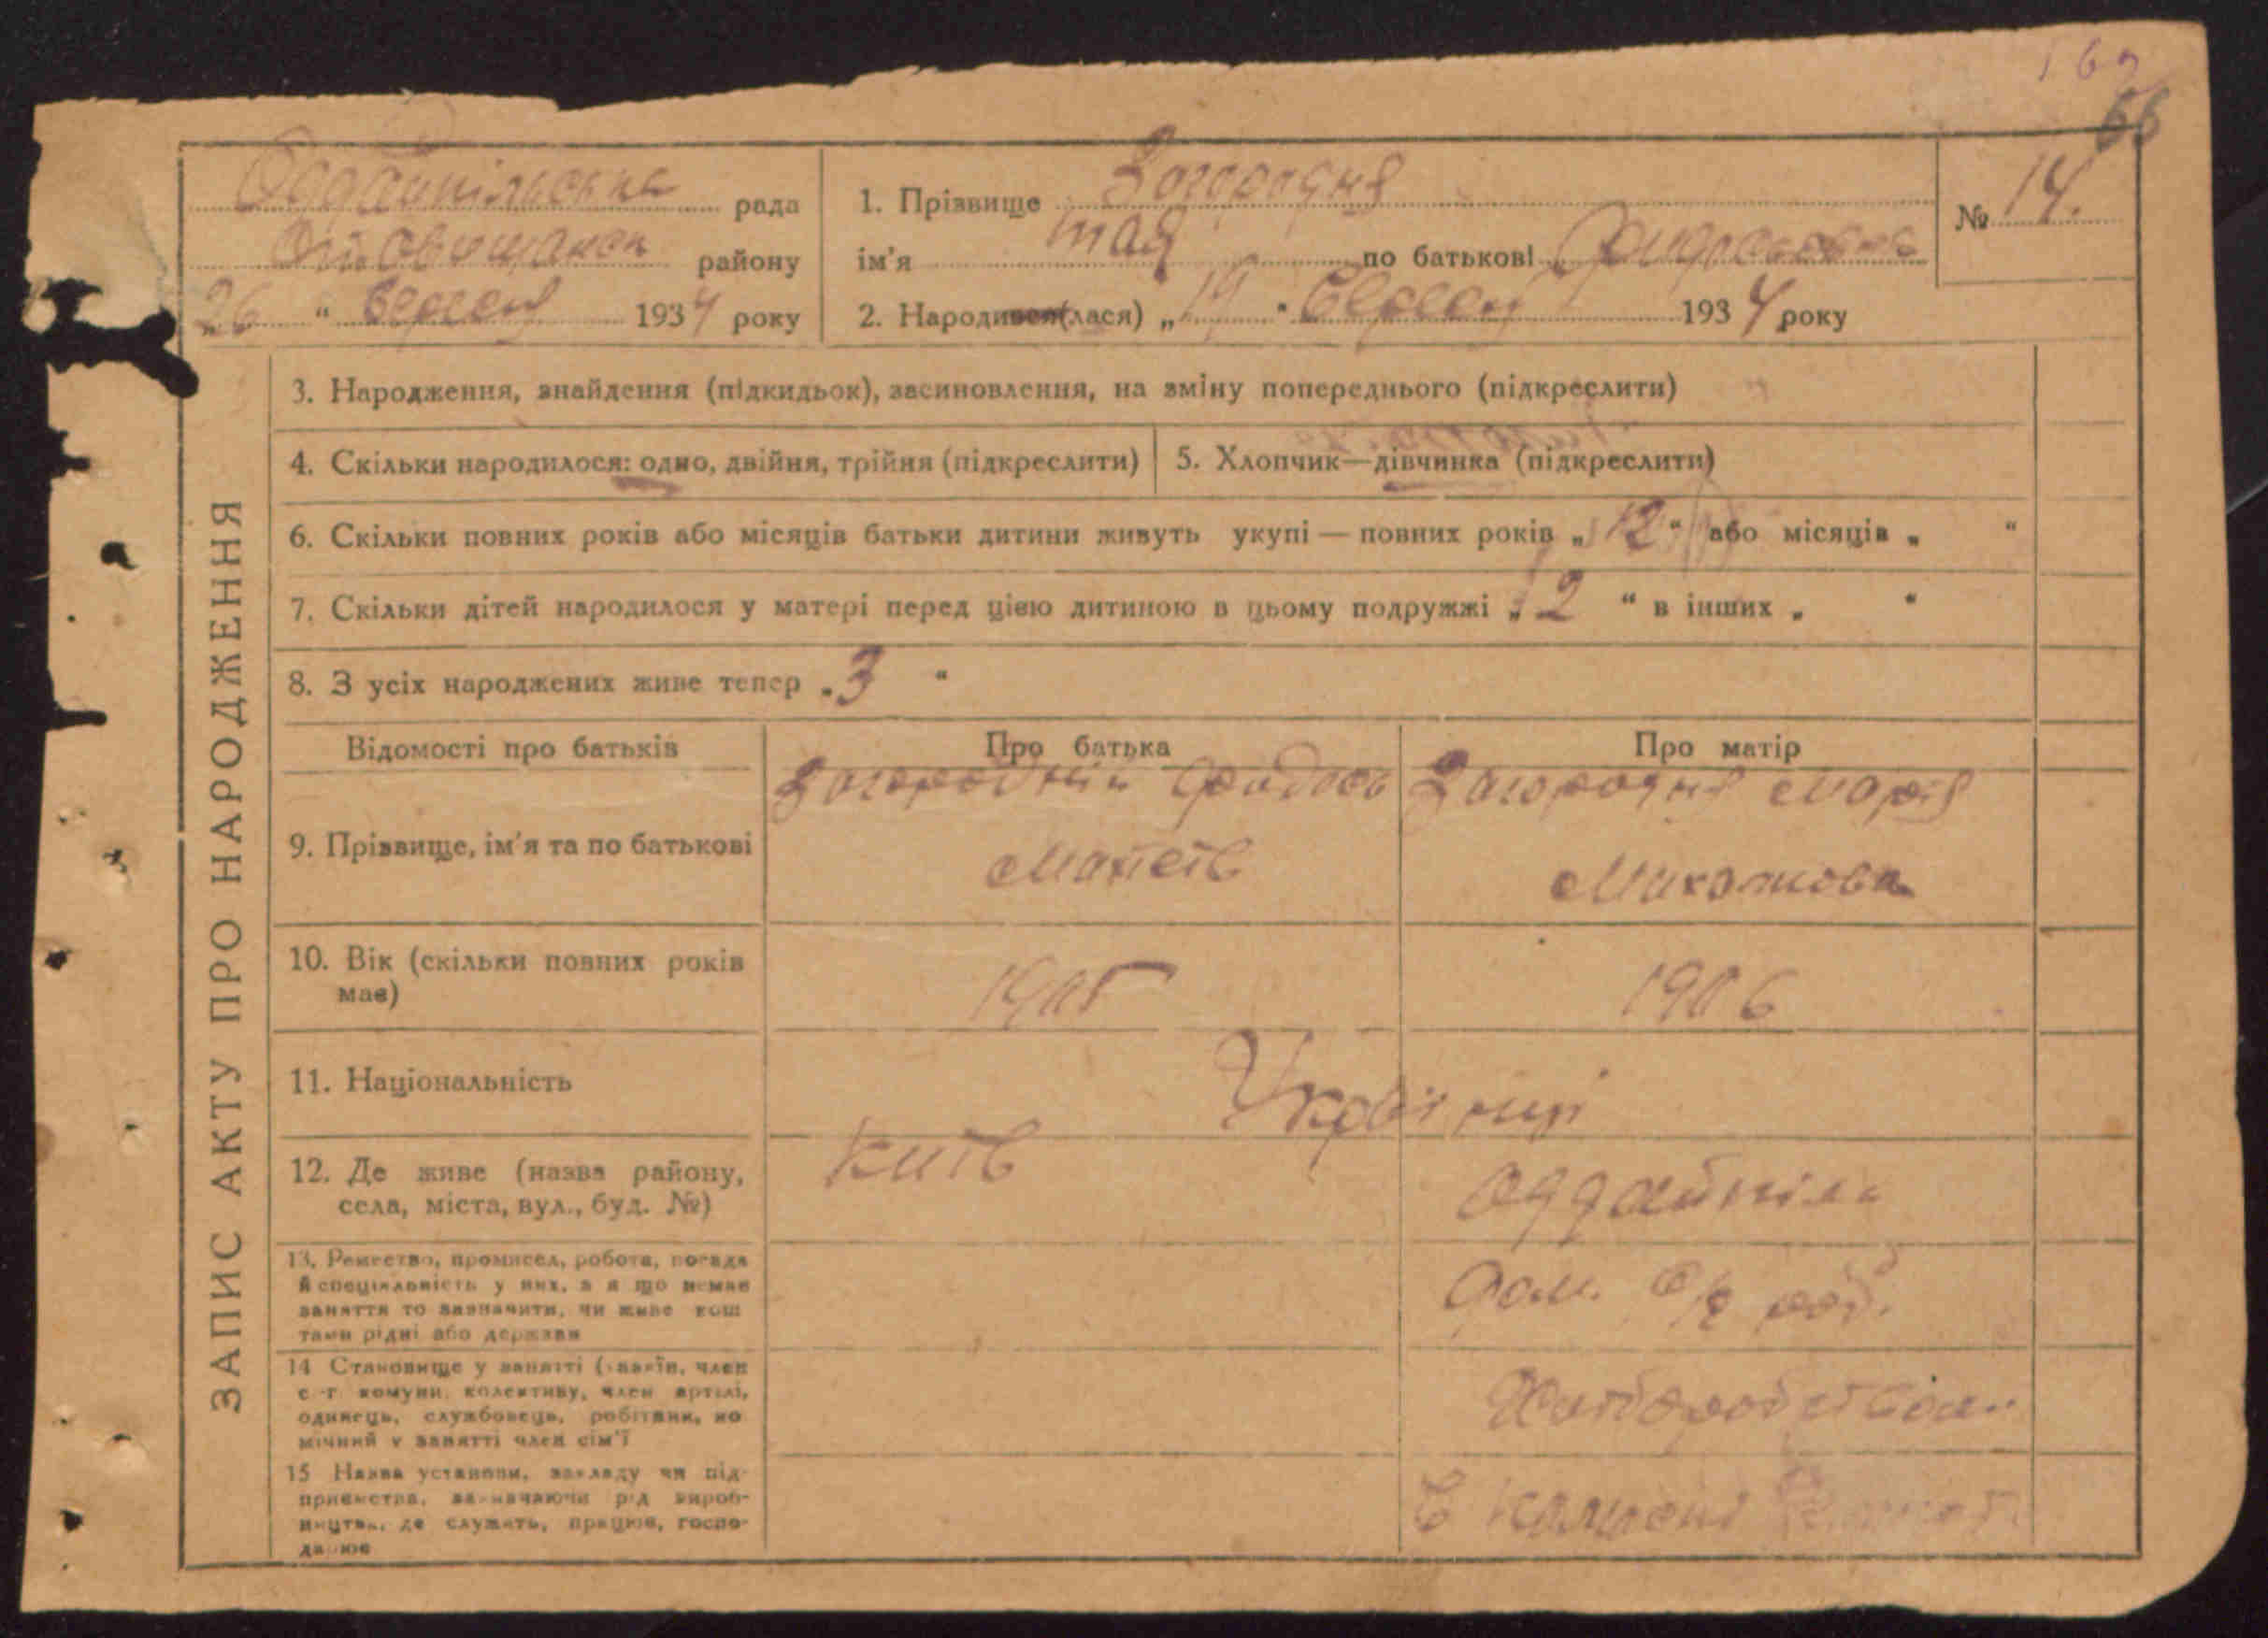 66
рада
району
26 " березня 1934 року
1. Прізвище Загородня
ім'я Тая по батькові
2. Народився (лася) „19" березня 1934 року
№ 14.
ЗАПИС АКТУ ПРО НАРОДЖЕННЯ
3. Народження, знайдення (підкидьок), засиновлення, на зміну попереднього (підкреслити)
4. Скільки народилося: одно, двійня, трійня (підкреслити)
5. Хлопчик—дівчинка (підкреслити)
6. Скільки повних років або місяців батьки дитини живуть укупі — повних років „12" або місяців „ "
7. Скільки дітей народилося у матері перед цією дитиною в цьому подружжі „2 " в інших „ "
8. З усіх народжених живе тепер „3 "
Відомості про батьків
Про батька
Про матір
9. Прізвище, ім'я та по батькові
Загородній
Загородня Марія
10. Вік (скільки повних років
має)
1905
1906
11. Національність
Українці
12. Де живе (назва району,
села, міста, вул., буд. №)
Київ
Оддайпіль
13. Ремество, промисел, робота, посада
й спеціяльність у них, а я що немає
заняття то зазначити, чи живе кош
тами рідні або держави
14 Становище у занятті (хазяїн, член
с.-г. комуни, колективу, член артілі,
одинець, службовець, робітник, по
мічний у занятті член сім'ї
15 Назва установи, закладу чи під-
приємства, зазначаючи рід вироб-
ництва, де служить, працює, госпо-
дарює